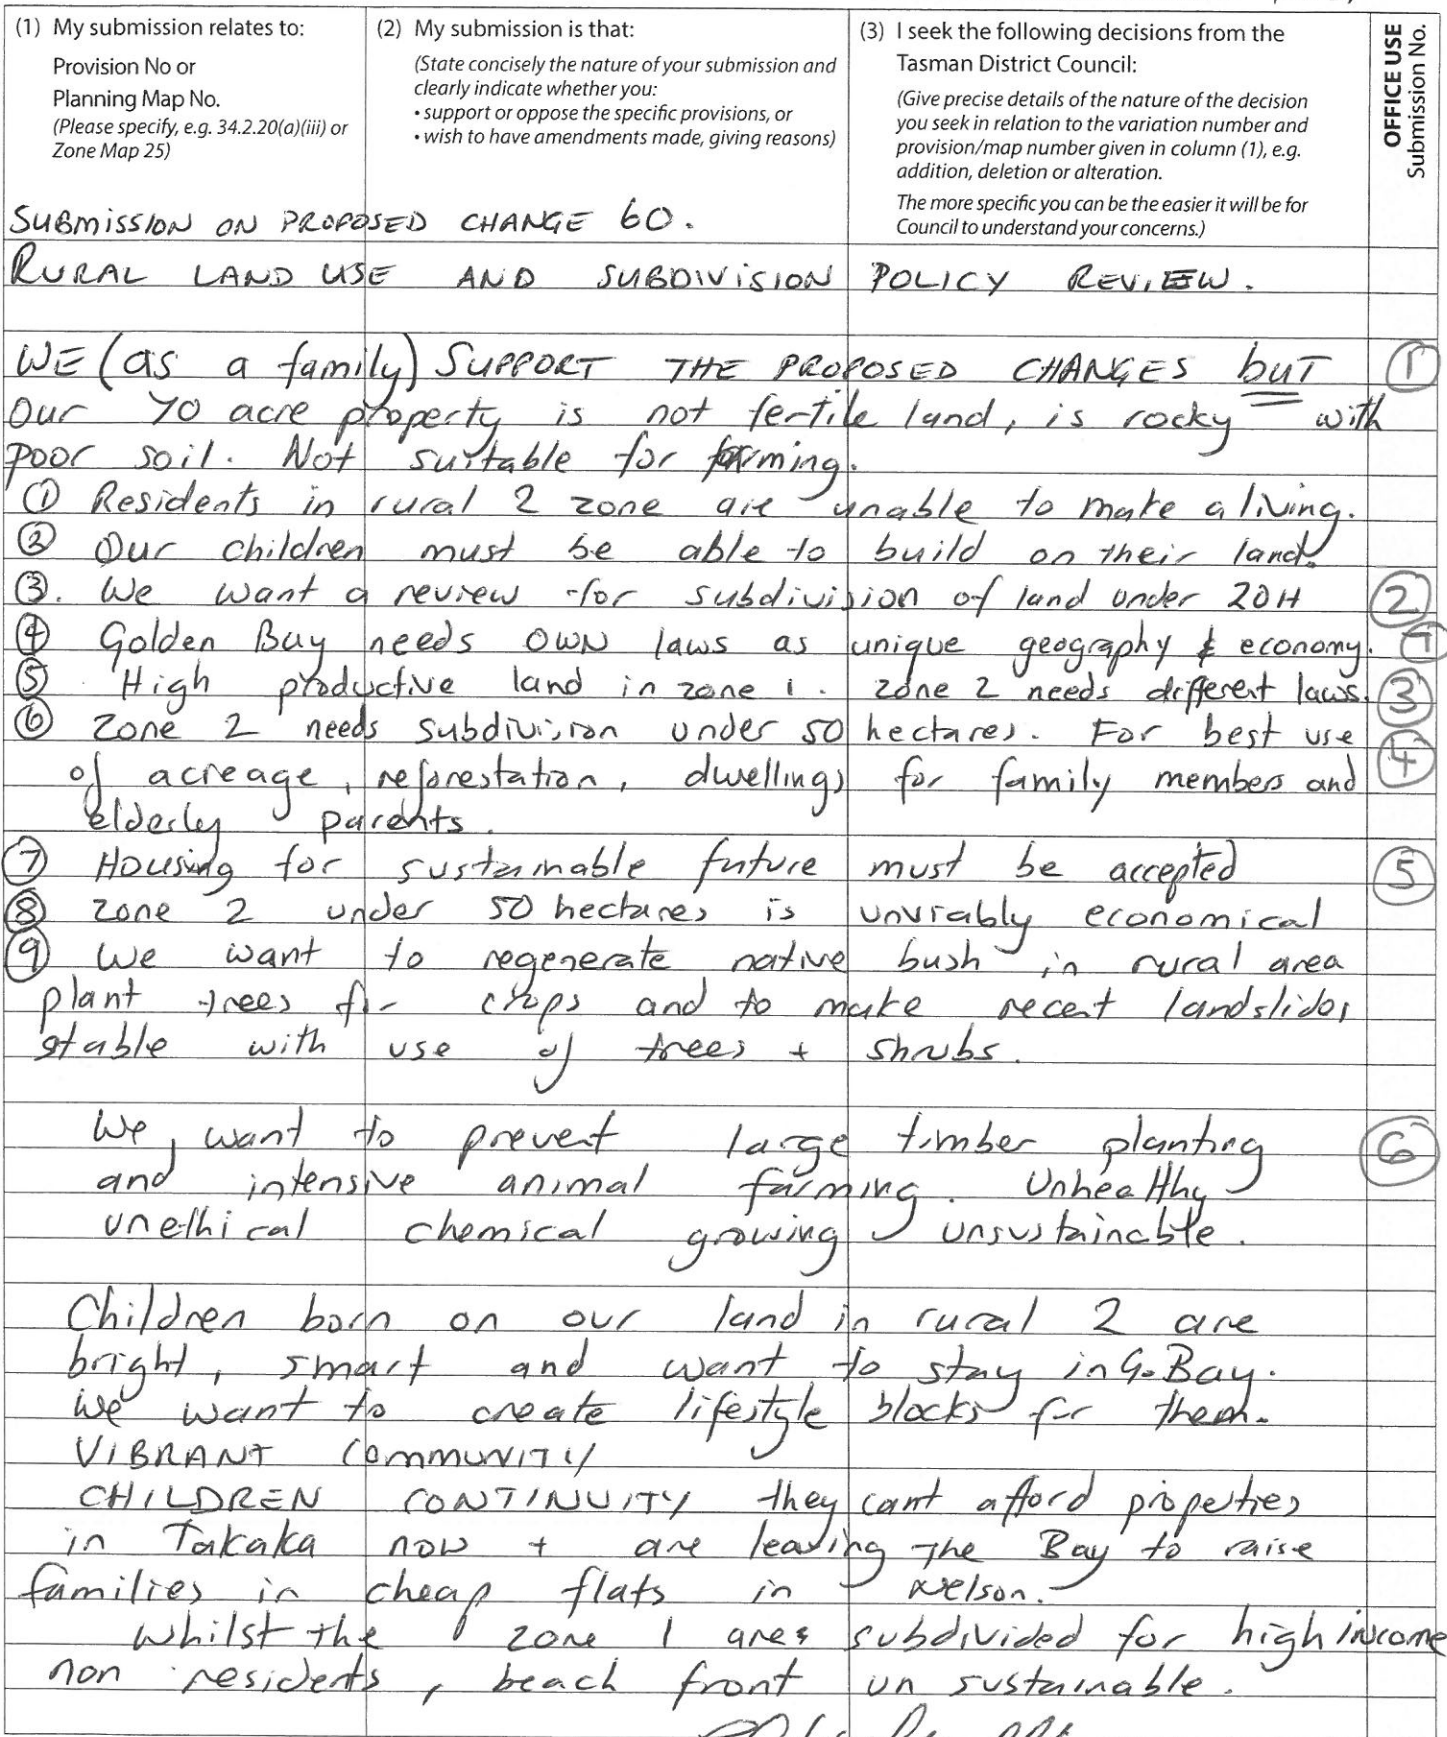 (1) My submission relates to:
Provision No or
Planning Map No.
(Please specify, e.g. 34.2.20(a)(iii) or
Zone Map 25)
(2) My submission is that:
(State concisely the nature of your submission and
clearly indicate whether you:
• support or oppose the specific provisions, or
• wish to have amendments made, giving reasons)
(3) I seek the following decisions from the
Tasman District Council:
(Give precise details of the nature of the decision
you seek in relation to the variation number and
provision/map number given in column (1), e.g.
addition, deletion or alteration.
The more specific you can be the easier it will be for
Council to understand your concerns.)
OFFICE USE
Submission No.
SUBMISSION ON PROPOSED CHANGE 60.
RURAL LAND USE AND SUBDIVISION POLICY REVIEW.
WE (as a family) SUPPORT THE PROPOSED CHANGES bUT ①
Our 70 acre property is not fertile land, is rocky with
poor soil. Not suitable for farming.
① Residents in rural 2 zone are unable to make a living.
② Our children must be able to build on their land.
③. We want a review for subdivision of land under 20H ②
④ Golden Bay needs OWN laws as unique geography & economy.
⑤ High productive land in zone 1. zone 2 needs different laws. ③
⑥ Zone 2 needs subdivision under 50 hectares. For best use
of acreage, reforestation, dwellings for family members and ④
elderly parents.
⑦ Housing for sustainable future must be accepted ⑤
⑧ zone 2 under 50 hectares is unviably economical
⑨ We want to regenerate native bush in rural area
plant trees for crops and to make recent landslides
stable with use of trees + shrubs.
We want to prevent large timber planting ⑥
and intensive animal farming. Unhealthy
unethical chemical growing unsustainable.
Children born on our land in rural 2 are
bright, smart and want to stay in G.Bay.
We want to create lifestyle blocks for them.
VIBRANT COMMUNITY
CHILDREN CONTINUITY they cant afford properties
in Takaka now + are leaving The Bay to raise
families in cheap flats in Nelson.
Whilst the zone 1 ares subdivided for high income
non residents, beach front un sustainable.